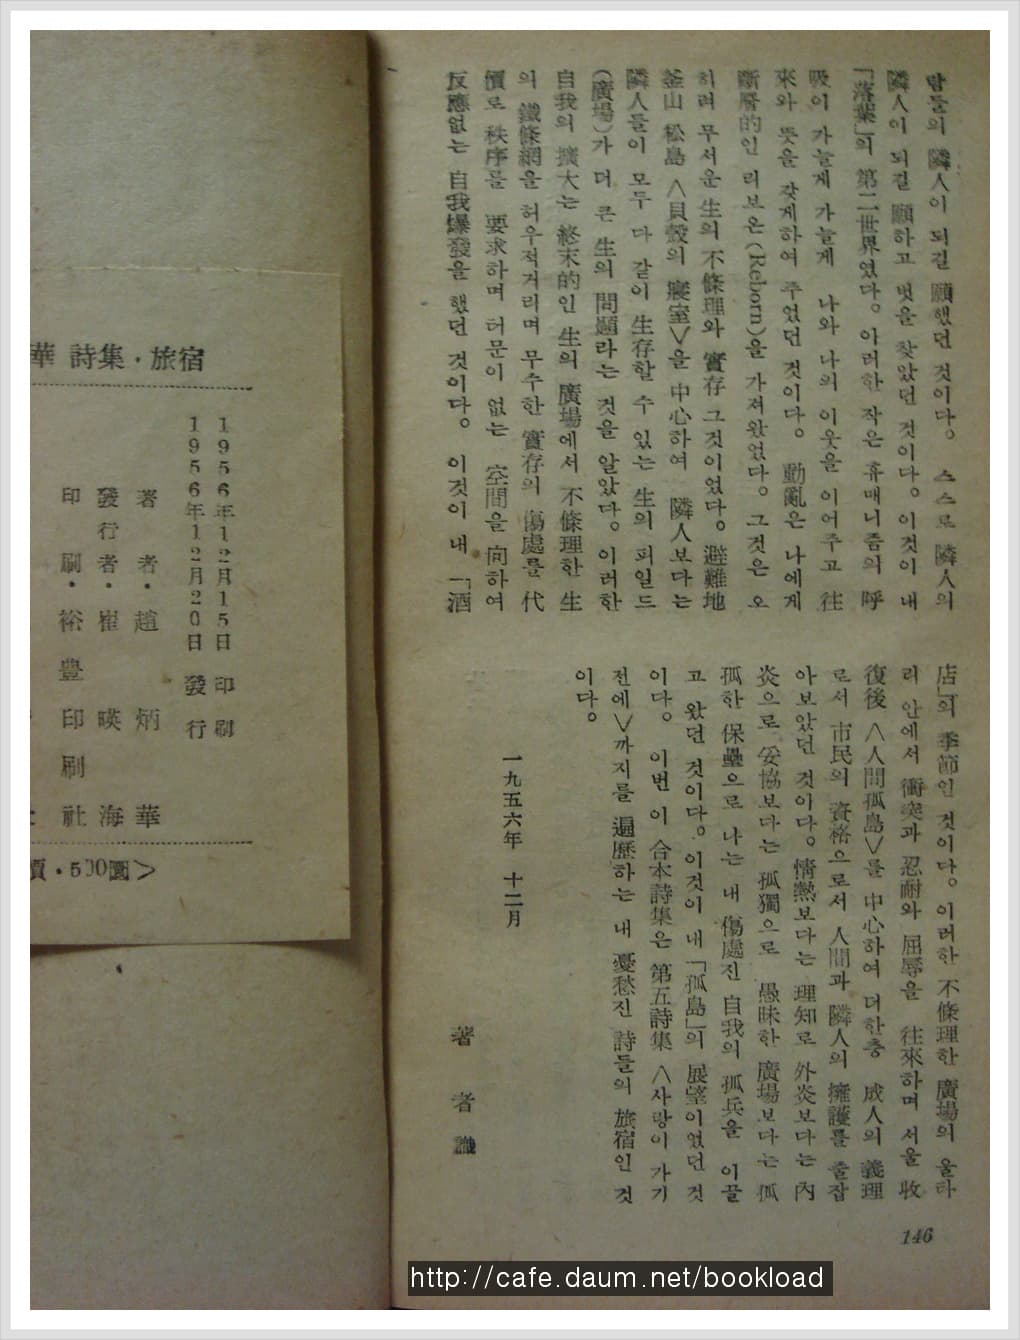 람들의 隣人이 되길 願했던 것이다. 스스로 隣人의
隣人이 되길 願하고 벗을 찾았던 것이다. 이것이 내
「落葉」의 第二世界였다. 이러한 작은 휴매니즘의 呼
吸이 가늘게 가늘게 나와 나의 이웃을 이어주고 往
來와 뜻을 갖게하여 주었던 것이다. 動亂은 나에게
斷層的인 리보온(Reborn)을 가져왔었다. 그것은 오
히려 무서운 生의 不條理와 實存 그것이었다. 避難地
釜山 松島 〈貝殼의 寢室〉을 中心하여 隣人보다는
隣人들이 모두 다 같이 生存할 수 있는 生의 피일드
(廣場)가 더 큰 生의 問題라는 것을 알았다. 이러한
自我의 擴大는 終末的인 生의 廣場에서 不條理한 生
의 鐵條網을 허우적거리며 무수한 實存의 傷處를 代
償로 秩序를 要求하며 허문이 없는 空間을 向하여
反應없는 自我爆發을 했던 것이다. 이것이 내 「酒
店」의 季節인 것이다. 이러한 不條理한 廣場의 울타
리 안에서 衝突과 忍耐와 屈辱을 往來하며 서울 收
復後 〈人間孤島〉를 中心하여 더한층 成人의 義理
로서 市民의 資格으로서 人間과 隣人의 擁護를 출잡
아보았던 것이다. 情熱보다는 理知로 外炎보다는 內
炎으로 妥協보다는 孤獨으로 愚昧한 廣場보다는 孤
孤한 保壘으로 나는 내 傷處진 自我의 孤兵을 이끌
고 왔던 것이다. 이것이 내 「孤島」의 展望이었던 것
이다. 이번 이 合本詩集은 第五詩集 〈사랑이 가기
전에〉까지를 遍歷하는 내 憂愁진 詩들의 旅宿인 것
이다.
一九五六年 十二月
著者識
146
華 詩集・旅宿
1956年12月15日 印刷
1956年12月20日 發行
著者・趙炳華
發行者・崔暎海
印刷・裕豊印刷社
價・500圜>
http://cafe.daum.net/bookload